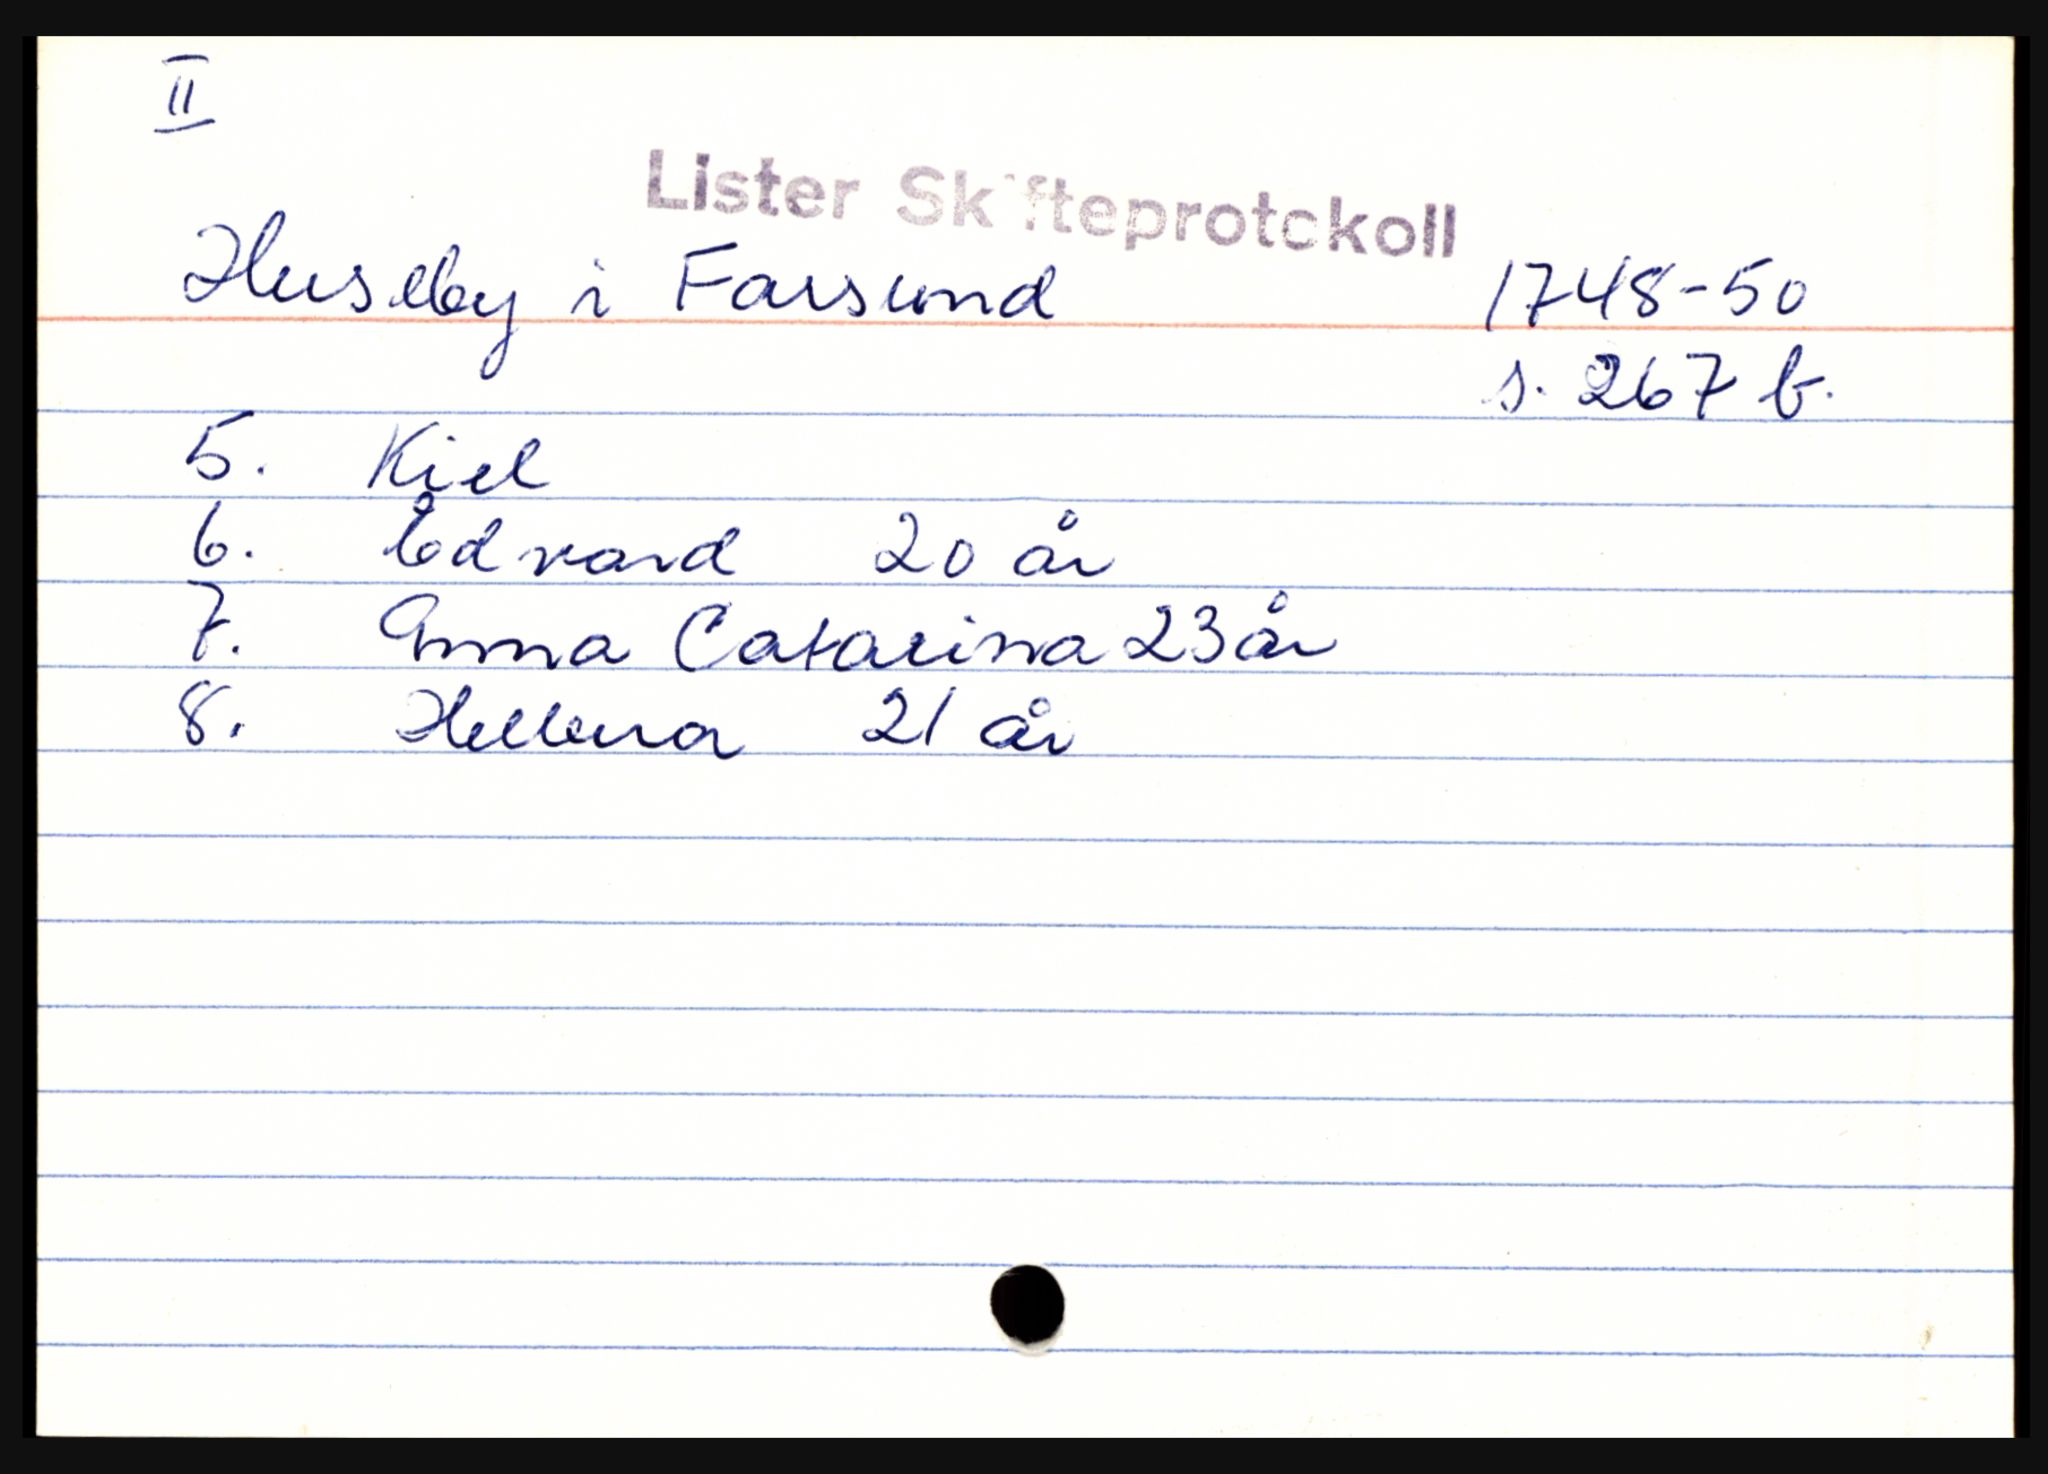 II
Lister Skifteprotokoll
Huseby i Farsund 1748-50
s. 267 b.
5. Kiel
6. Edvard 20 år
7. Anna Catarina 23 år
8. Hellena 21 år